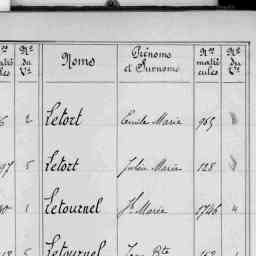 Nos matri cules Nº du Vt Noms Prénoms et Surnoms Nos matri cules Nº du Vt
2 Letort Emile Marie 965
97 5 Letort Julien Marie 128
1 Letournel Jh Marie 1746 4
5 Letournel Jean Bte 162